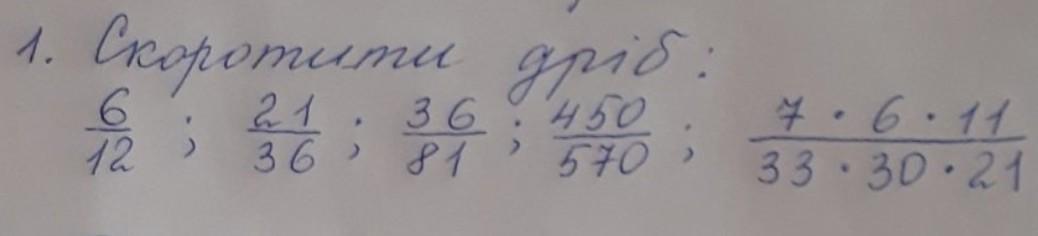 1. Скоротити дріб:
6/12 ; 21/36 ; 36/81 ; 450/570 ; 7 · 6 · 11/33 · 30 · 21